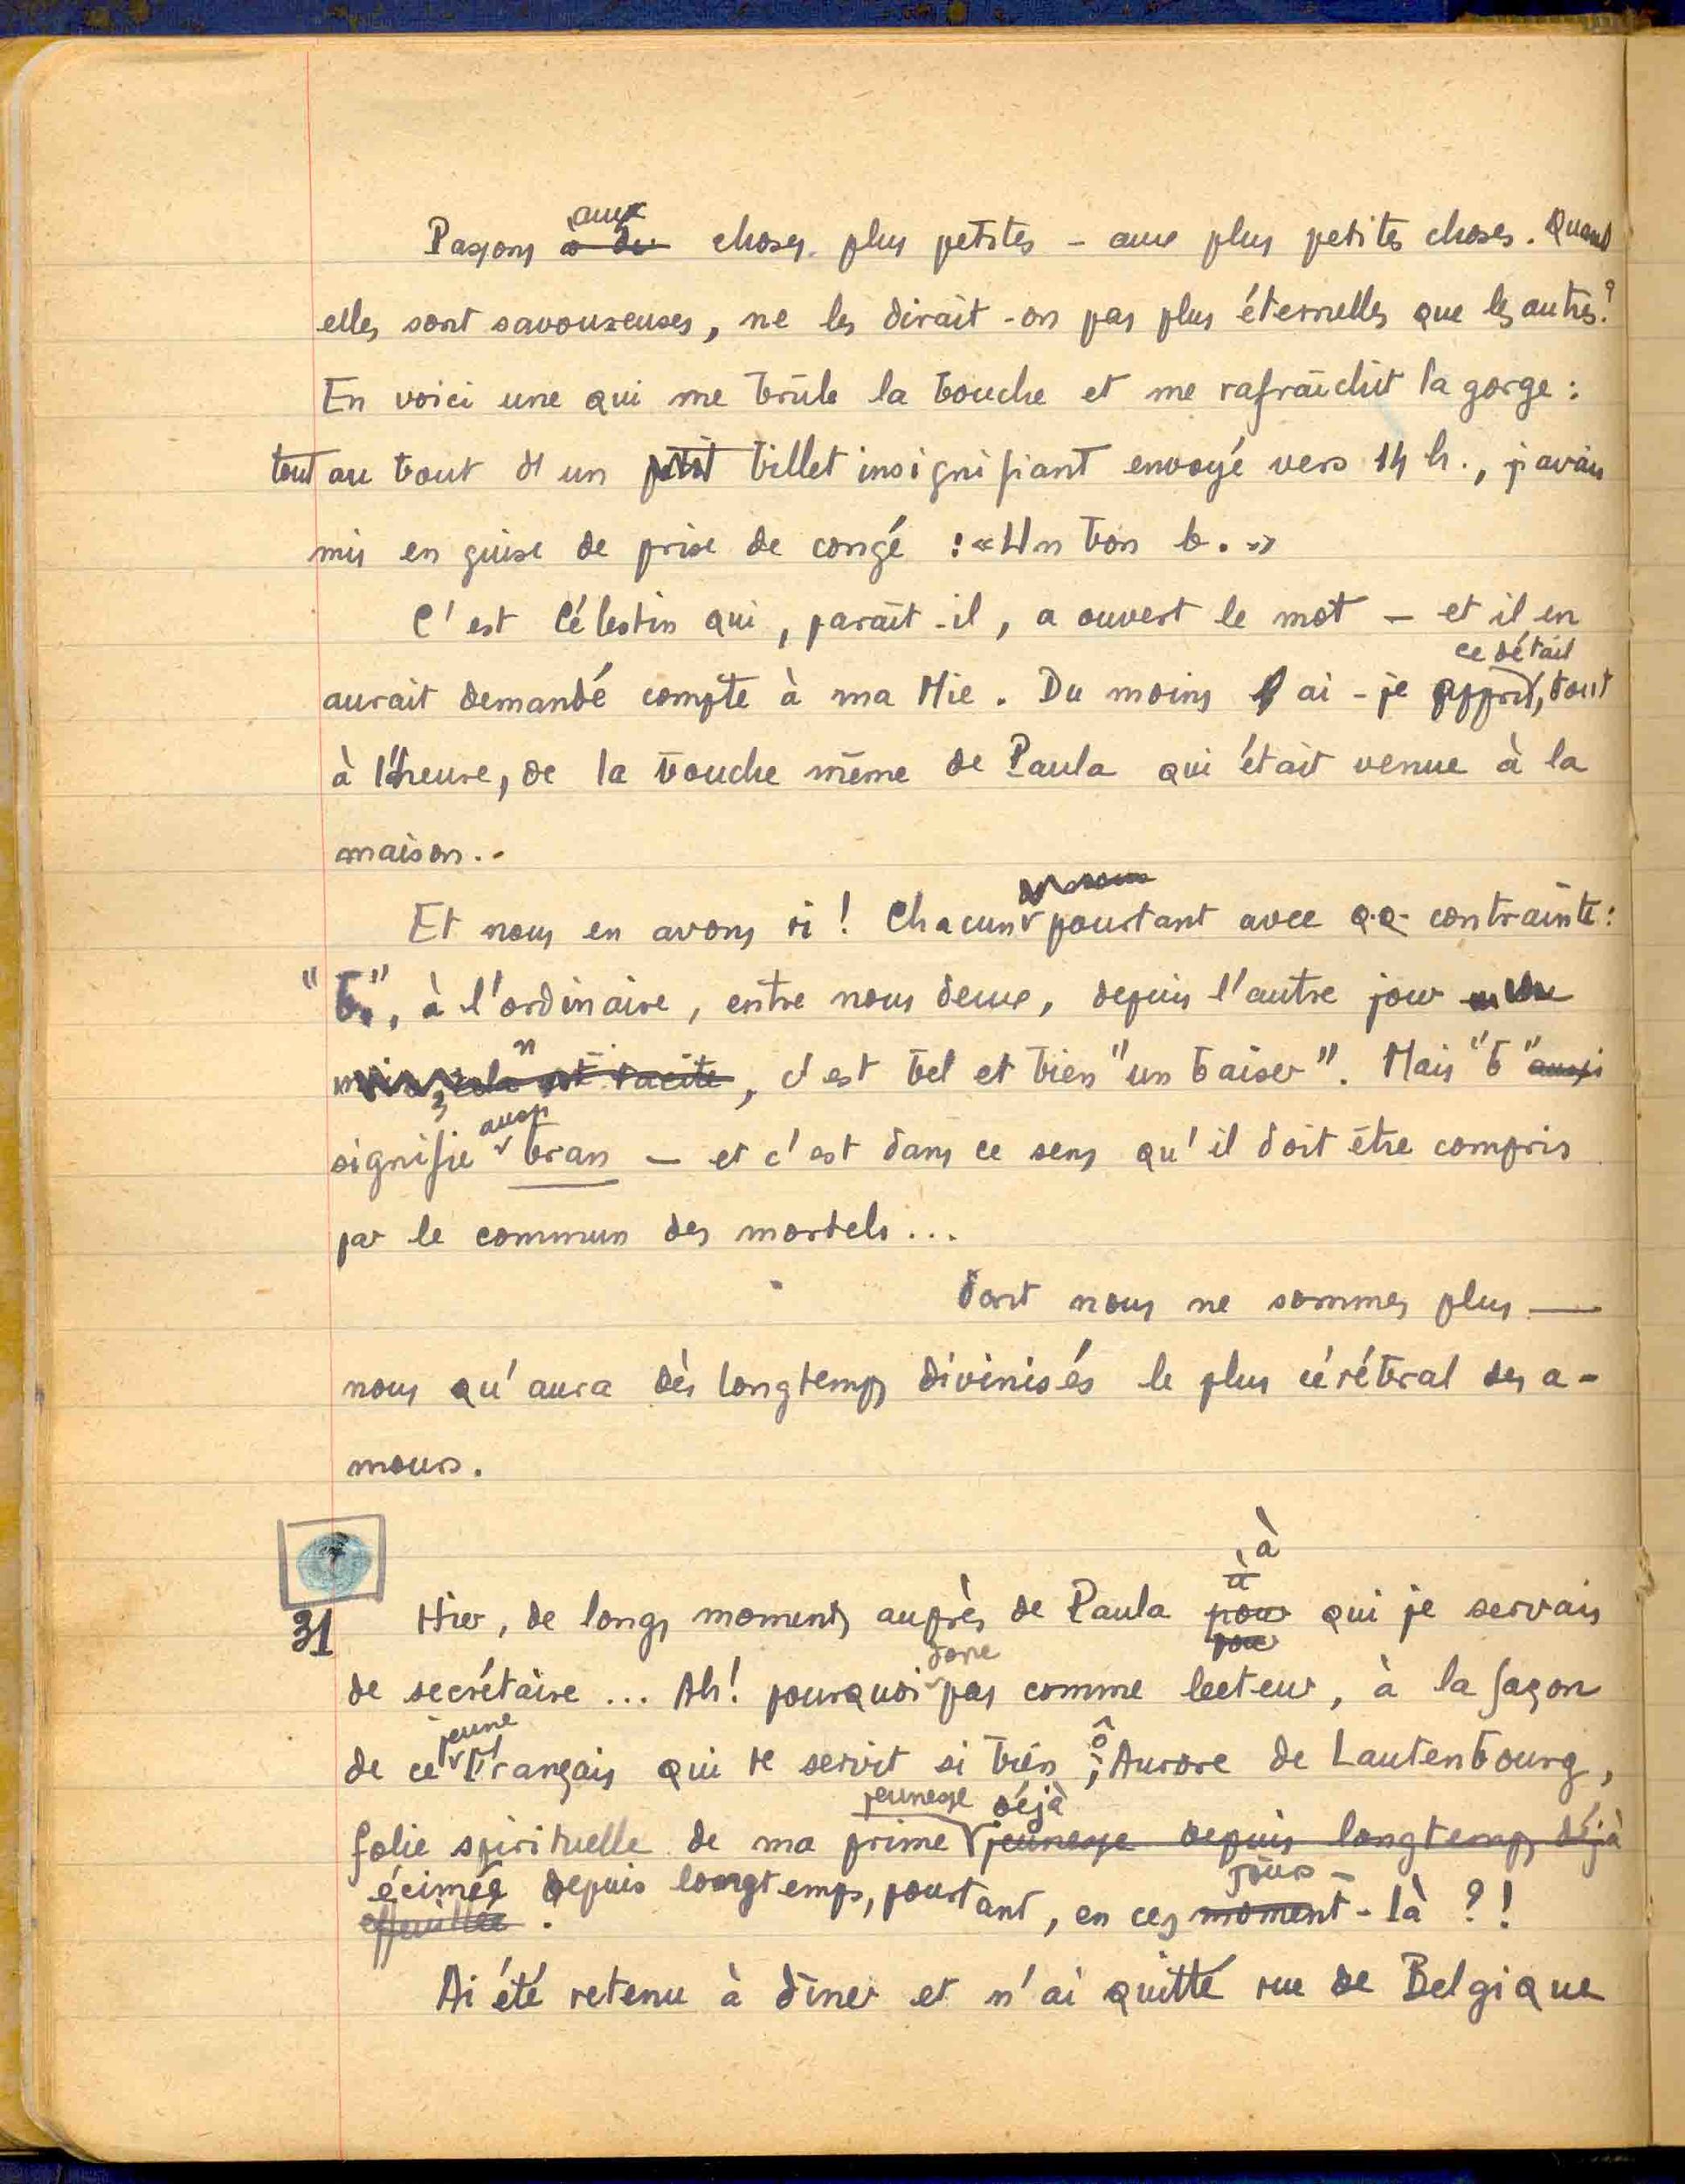 Passons aux choses plus petites - aux plus petites choses. Quand
elles sont savoureuses, ne les dirait-on pas plus éternelles que les autres?
En voici une qui me brûle la bouche et me rafraîchit la gorge :
tout au bout d'un petit billet insignifiant envoyé vers 14 h., j'avais
mis en guise de prise de congé : « Un bon b. »
C'est Célestin qui, paraît-il, a ouvert le mot - et il en
aurait demandé compte à ma Mie. Du moins ai-je appris ce détail, tout
à l'heure, de la bouche même de Paula qui était venue à la
maison..
Et nous en avons ri ! Chacun pourtant avec q.q. contrainte :
"b.", à l'ordinaire, entre nous deux, depuis l'autre jour
cela est tacite, c'est bel et bien "un baiser". Mais "b" aussi
signifie aussi bran - et c'est dans ce sens qu'il doit être compris
par le commun des mortels...
dont nous ne sommes plus —
nous qu'aura dès longtemps divinisés le plus cérébral des a-
mours.
31 Hier, de longs moments auprès de Paula pour à à qui je servais
de secrétaire ... Ah! pourquoi donc pas comme lecteur, à la façon
de ce jeune Français qui te servit si bien, ô Aurore de Lautenbourg,
folie spirituelle de ma prime jeunesse déjà jeunesse depuis longtemps déjà
effeuillée écimée depuis longtemps, pourtant, en ces moment jours-là ?!
Ai été retenu à dîner et n'ai quitté rue de Belgique